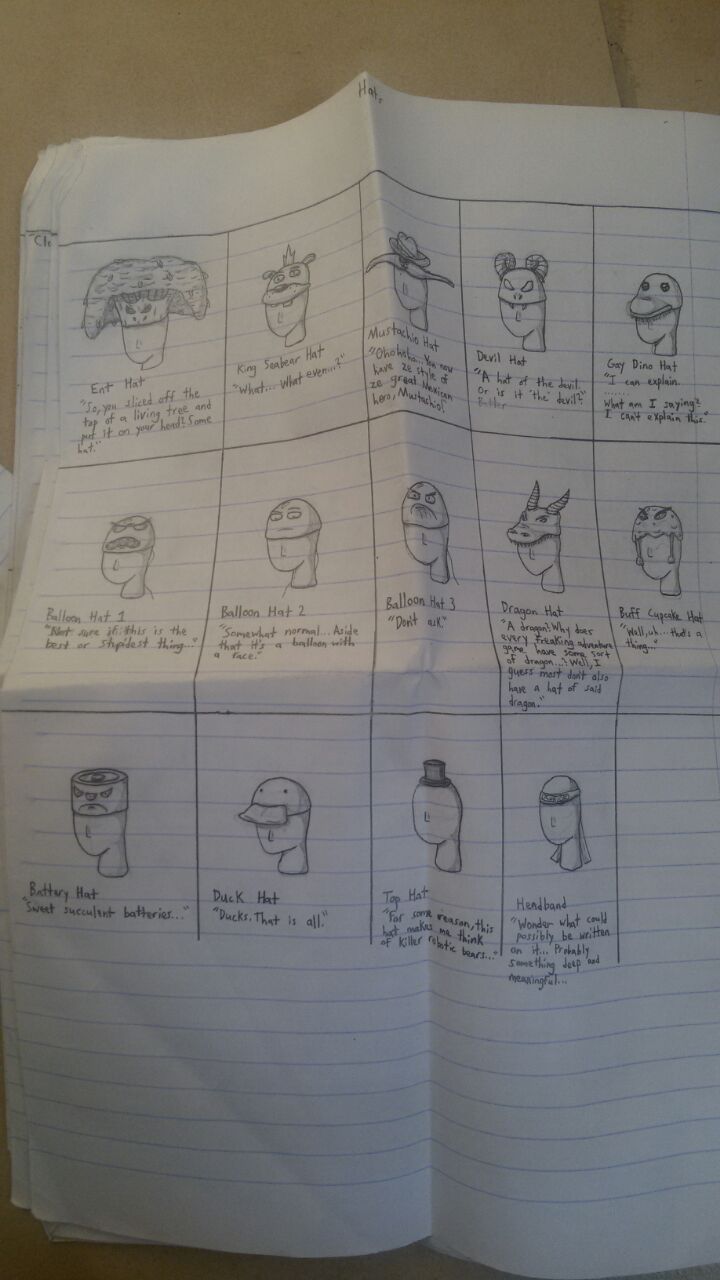 Hats
Ent Hat
"So, you sliced off the
top of a living tree and
put it on your head? Some
hat."
King Seabear Hat
"What... What even...?"
Mustachio Hat
"Ohohoho... You now
have ze style of
ze great Mexican
hero, Mustachio!
Devil Hat
"A hat of the devil.
Or is it 'the' devil?"
Gay Dino Hat
"I can explain.
.......
What am I saying?
I can't explain this."
Balloon Hat 1
"Not sure if this is the
best or stupidest thing..."
Balloon Hat 2
"Somewhat normal... Aside
that it's a balloon with
a face."
Balloon Hat 3
"Don't ask."
Dragon Hat
"A dragon? Why does
every freaking adventure
game have some sort
of dragon...? Well, I
guess most don't also
have a hat of said
dragon."
Buff Cupcake Hat
"Well, uh... that's a
thing..."
Battery Hat
"Sweet succulent batteries..."
Duck Hat
"Ducks. That is all."
Top Hat
"For some reason, this
hat makes me think
of killer robotic bears..."
Hendband
"Wonder what could
possibly be written
on it... Probably
something deep and
meaningful...